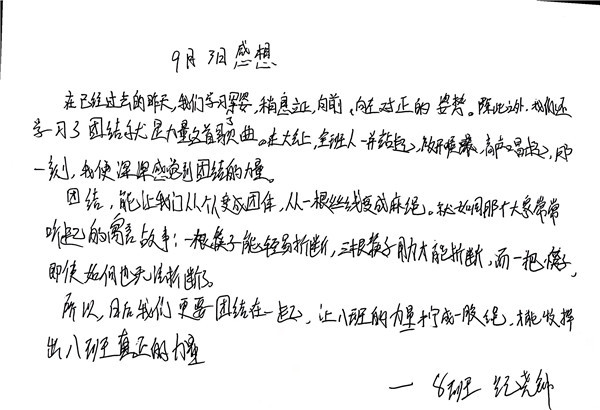 9月3日感想
在已经过去的昨天,我们学习军姿,稍息立正,向前、向左对正的姿势。除此之外,我们还
学习了团结就是力量这首歌曲。在大会上,全班人一并站起,放开喉咙,高声唱起,那
一刻,我便深深感觉到团结的力量。
团结,能让我们从个人变成团体,从一根丝线变成麻绳。就如同那个大家常常
听起的寓言故事:一根筷子能轻易折断,三根筷子用力才能折断,而一把筷子,
即使如何也无法折断了。
所以,日后我们更要团结在一起,让八班的力量拧成一股绳,才能发挥
出八班真正的力量
— 8班